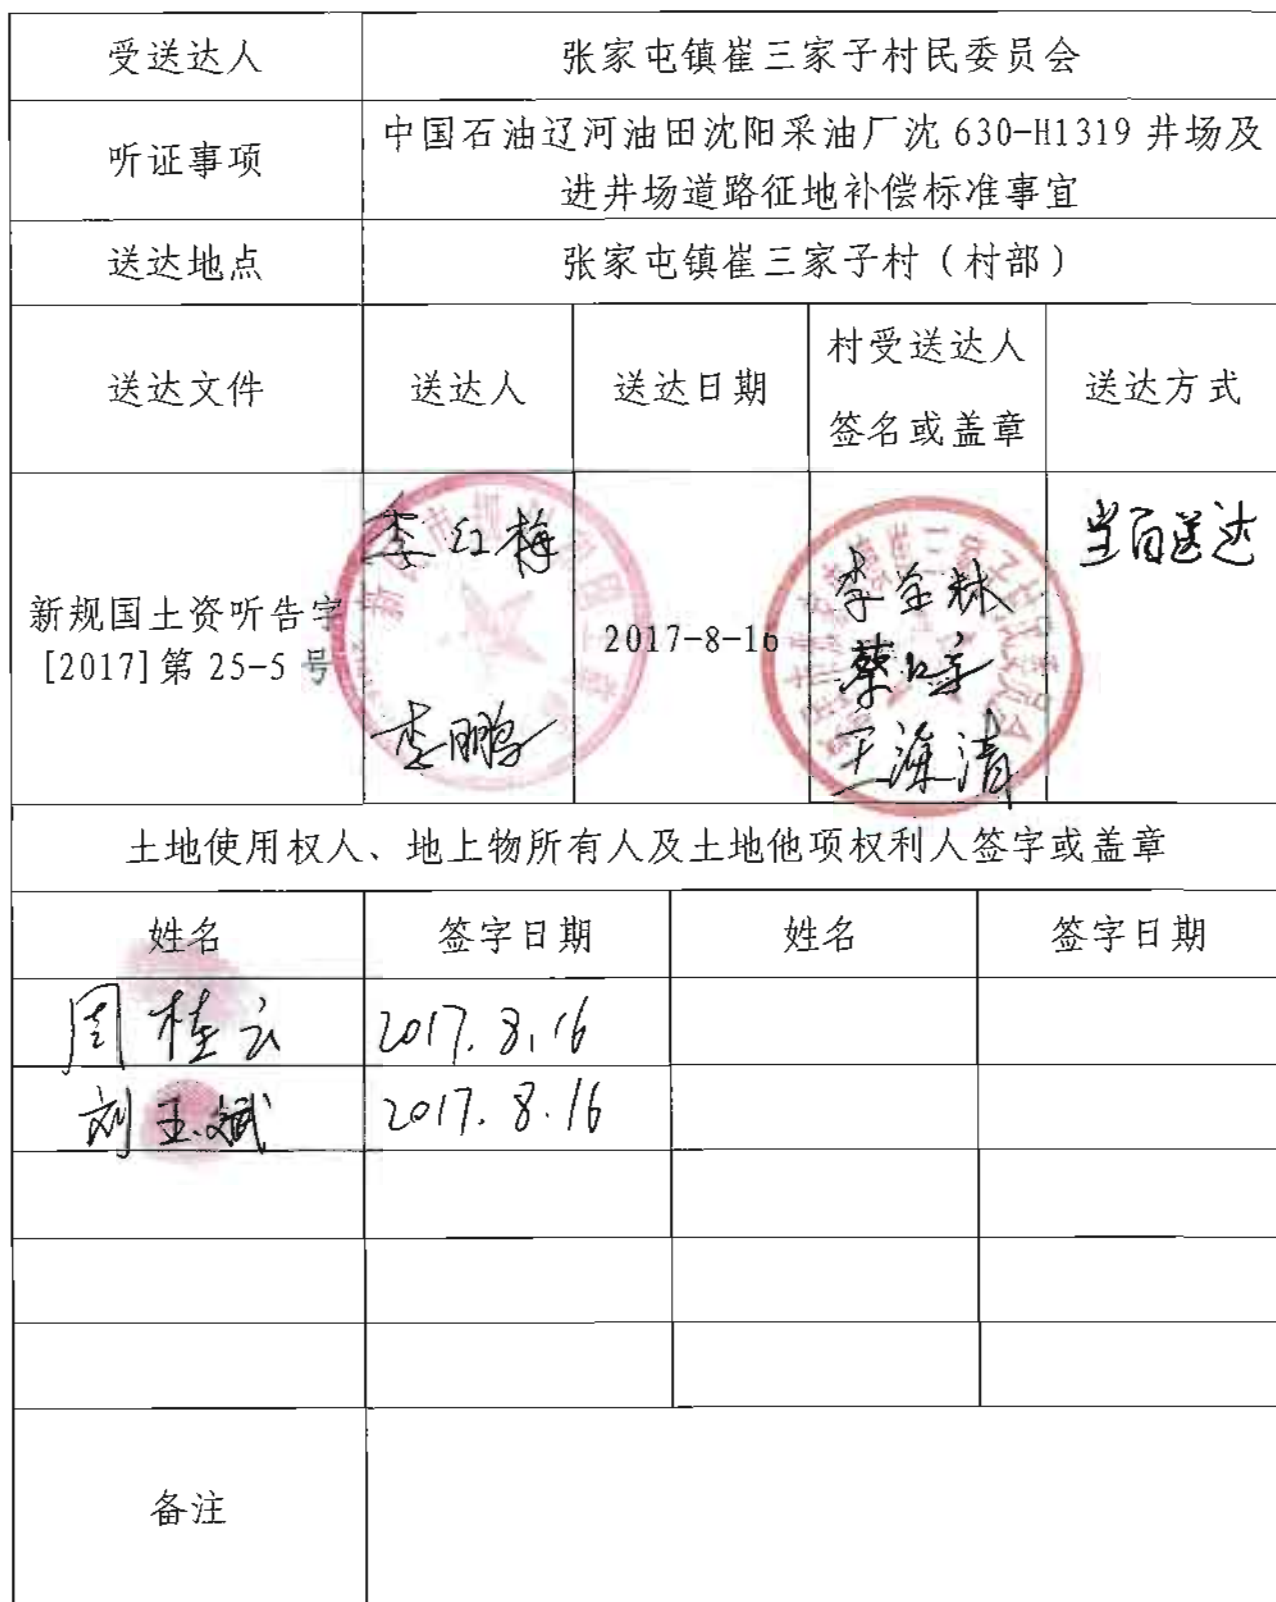 受送达人 张家屯镇崔三家子村民委员会
听证事项 中国石油辽河油田沈阳采油厂沈630-H1319井场及
进井场道路征地补偿标准事宜
送达地点 张家屯镇崔三家子村（村部）
送达文件 送达人 送达日期 村受送达人
签名或盖章 送达方式
新规国土资听告字
[2017]第 25-5 号
李红梅
李鹏
2017-8-16
李全林
王海清
当面送达
土地使用权人、地上物所有人及土地他项权利人签字或盖章
姓名 签字日期 姓名 签字日期
周桂云 2017.8.16
刘玉斌 2017.8.16
备注